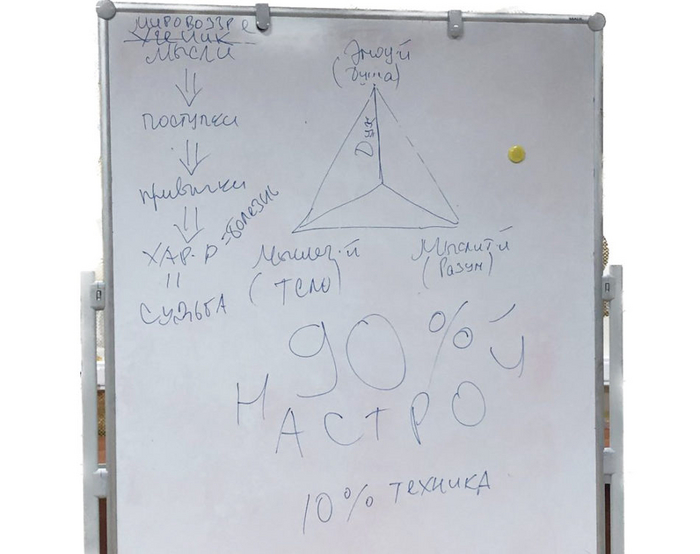 МИРОВОЗЗРЕ
МЫСЛИ
поступки
привычки
ХАР-Р = болезнь
СУДЬБА
Эмоц-й
(Душа)
Дух
(ТЕЛО)
Мыслит-й
(Разум)
90%
НАСТРОЙ
10% ТЕХНИКА